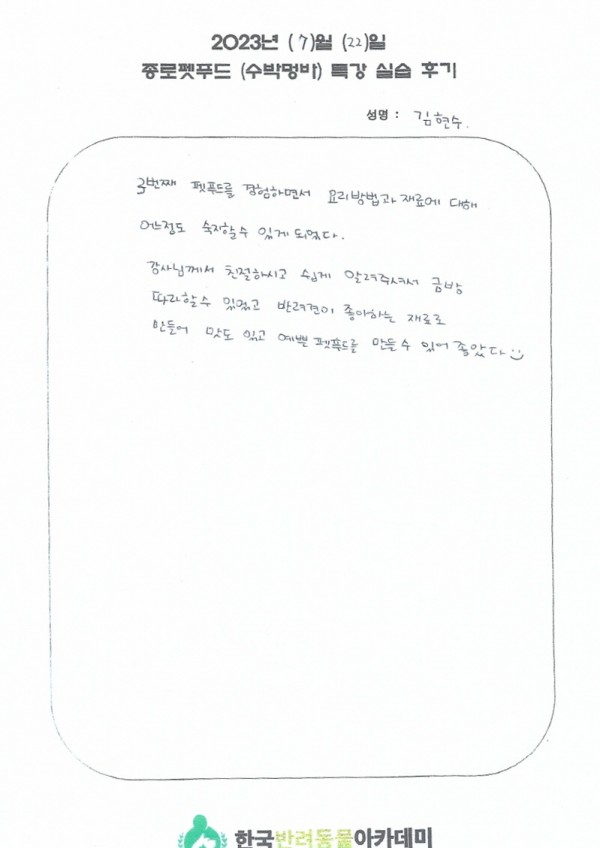 2023년 (7)월 (22)일
종로펫푸드 (수박멍바) 특강 실습 후기
성명 : 김현수.
3번째 펫푸드를 경험하면서 요리방법과 재료에 대해
어느정도 숙지할수 있게 되었다.
강사님께서 친절하시고 쉽게 알려주셔서 금방
따라할수 있었고 반려견이 좋아하는 재료로
만들어 맛도 있고 예쁜 펫푸드를 만들수 있어 좋았다
한국반려동물아카데미